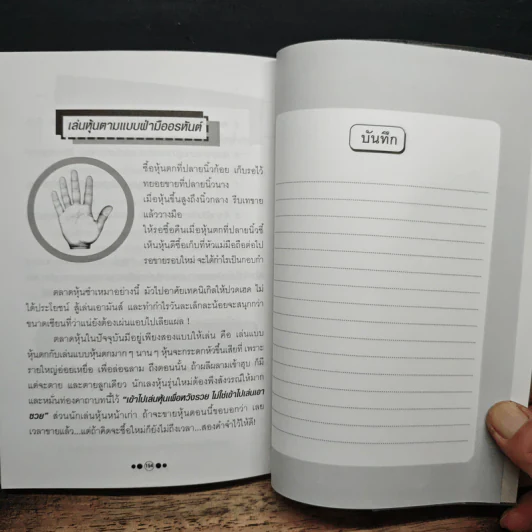 เล่นหุ้นตามแบบฝ่ามืออรหันต์
ซื้อหุ้นตกที่ปลายนิ้วก้อย เก็บรอไว้
ทยอยขายที่ปลายนิ้วนาง
เมื่อหุ้นขึ้นสูงถึงนิ้วกลาง รีบเทขาย
แล้ววางมือ
ให้รอซื้อคืนเมื่อหุ้นตกที่ปลายนิ้วชี้
เห็นหุ้นดีซื้อเก็บที่หัวแม่มือถือต่อไป
รอขายรอบใหม่ จะได้กำไรเป็นกอบกำ
ตลาดหุ้นซ้ำเหมาอย่างนี้ มัวไปอาศัยเทคนิเกิลให้ปวดเฮด ไม่
ได้ประโยชน์ สู้เล่นเอามันส์ และทำกำไรวันละเล็กละน้อยจะสนุกกว่า
ขนาดเซียนที่ว่าแน่ยังต้องเผ่นแอบไปเลียแผล !
ตลาดหุ้นในปัจจุบันมีอยู่เพียงสองแบบให้เล่น คือ เล่นแบบ
หุ้นตกกับเล่นแบบหุ้นตกมาก ๆ นาน ๆ หุ้นจะกระตกหัวขึ้นเสียที เพราะ
รายใหญ่อ่อยเหยื่อ เพื่อล่อฉลาม ถึงตอนนั้น ถ้าผลีผลามเข้าฮุบ ก็มี
แต่จะตาย และตายลูกเดียว นักเลงหุ้นรุ่นใหม่ต้องพึงสังวรณ์ให้มาก
และหมั่นท่องคาถาบทนี้ไว้ "เข้าไปเล่นหุ้นเพื่อหวังรวย ไม่ใช่เข้าไปเล่นเอา
ซวย" ส่วนนักเล่นหุ้นหน้าเก่า ถ้าจะขายหุ้นตอนนี้ขอบอกว่า เลย
เวลาขายแล้ว...แต่ถ้าคิดจะซื้อใหม่ก็ยังไม่ถึงเวลา...สองคำจำไว้ให้ดี!
บันทึก